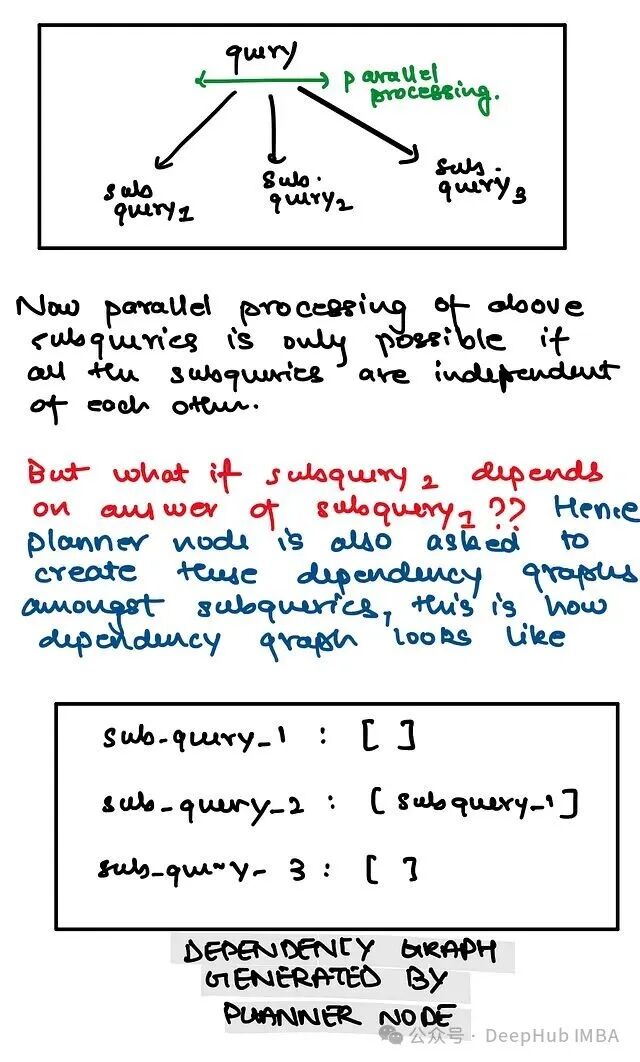 query
parallel
processing.
sub
query1
sub.
query2
sub.
query3
Now parallel processing of above
subqueries is only possible if
all the subqueries are independent
of each other.
But what if subquery2 depends
on answer of subquery1 ?? Hence
planner node is also asked to
create these dependency graphs
amongst subqueries, this is how
dependency graph looks like
sub-query-1 : [ ]
sub-query-2 : [subquery-1]
sub-query-3 : [ ]
DEPENDENCY GRAPH
GENERATED BY
PLANNER NODE
公众号 · DeepHub IMBA